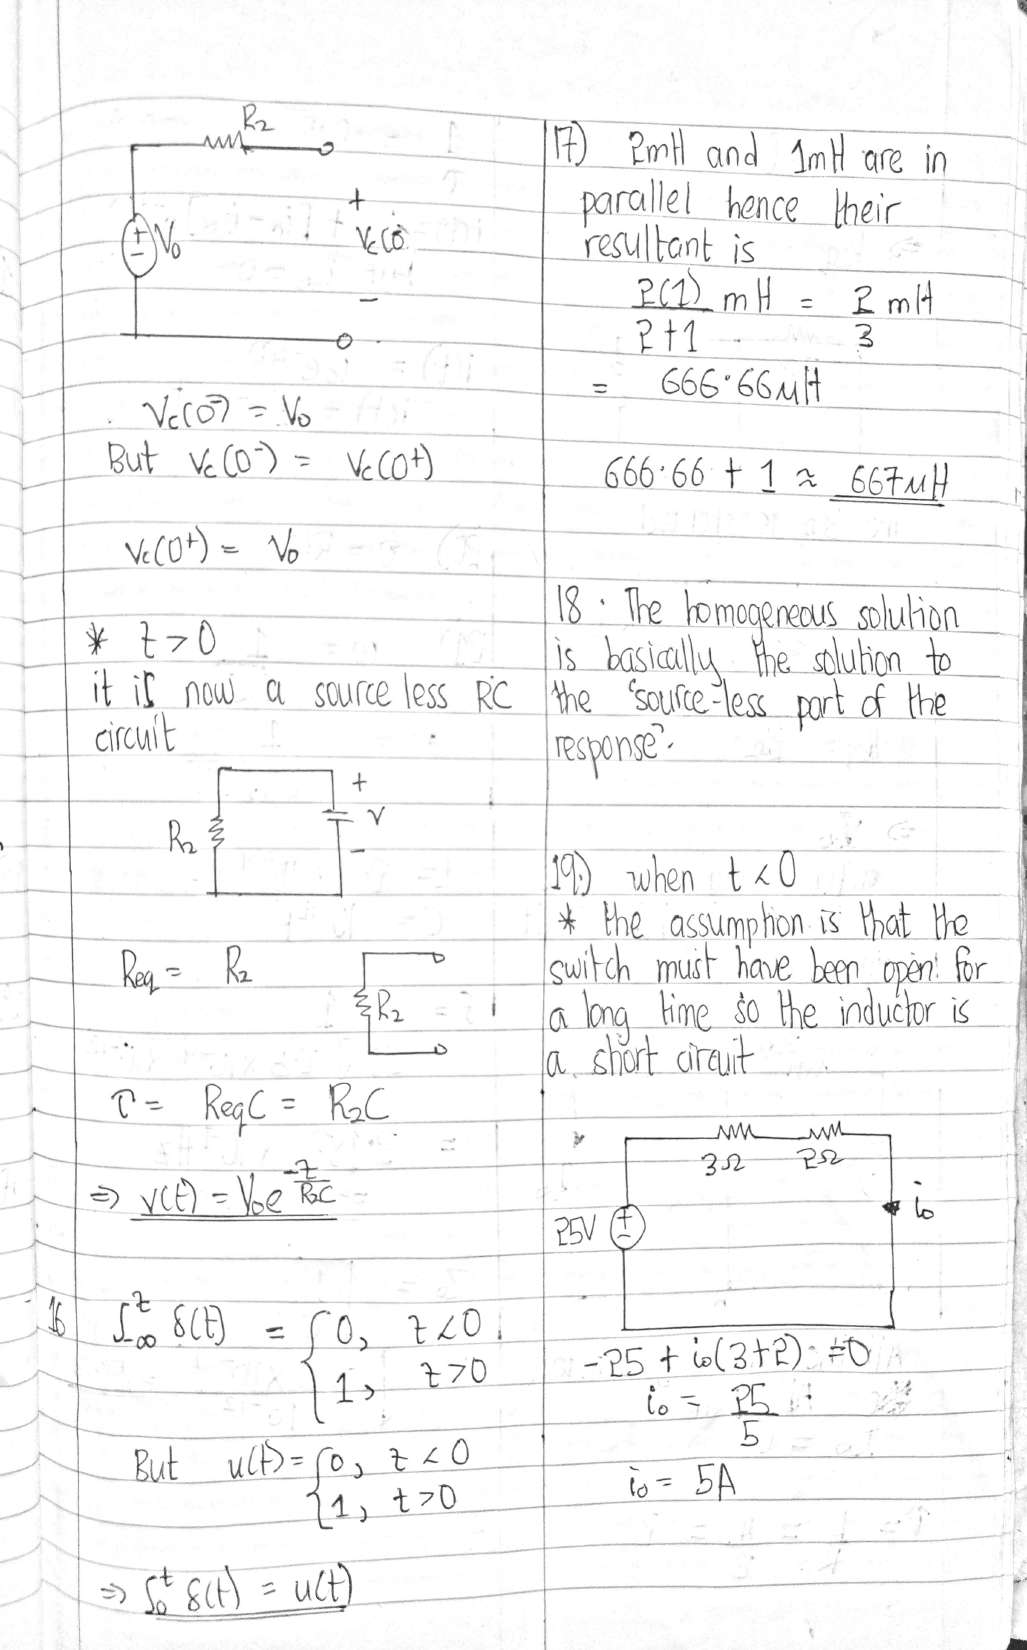 R2
+
V0
Vc(0
-
Vc(0-) = V0
But Vc(0-) = Vc(0+)
Vc(0+) = V0
* t>0
it is now a source less RC
circuit
+
R2
V
-
Req = R2
R2
τ = ReqC = R2C
⇒ v(t) = V0e^(-t/R2C)
16 ∫_-∞^t δ(t) = {0, t<0
1, t>0
But u(t) = {0, t<0
{1, t>0
⇒ ∫_0^t δ(t) = u(t)
17) 2mH and 1mH are in
parallel hence their
resultant is
2(1) mH = 2 mH
2+1 3
= 666.66μH
666.66 + 1 ≈ 667μH
18. The homogeneous solution
is basically the solution to
the "source-less part of the
response".
19.) when t<0
* the assumption is that the
switch must have been open for
a long time so the inductor is
a short circuit
3Ω 2Ω
25V
io
-25 + io(3+2) = 0
io = 25
5
io = 5A